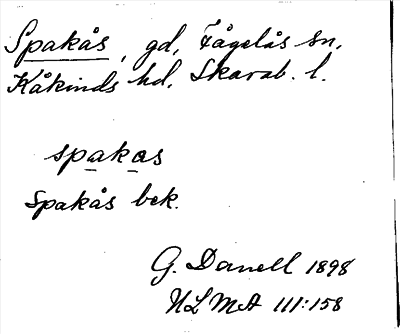 Spakås, gd, Fågelås sn,
Kåkinds hd, Skarab. l.
spakas
Spakås bek.
G. Danell 1898
ULMA 111:158